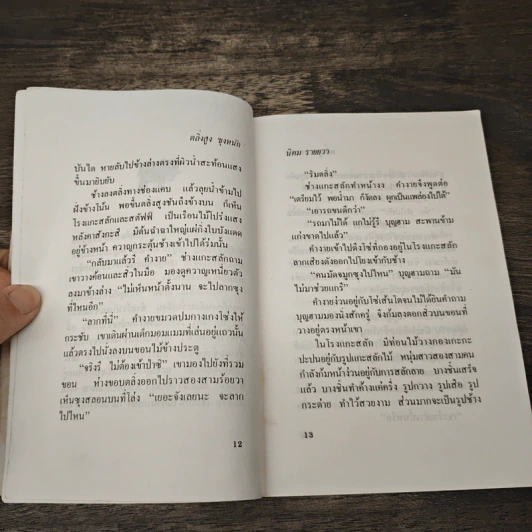 ตลิ่งสูง ซุงหนัก
บันได หายลับไปข้างล่างตรงที่ผิวน้ำสะท้อนแสง
ขึ้นมายิบยับ
ช้างลงตลิ่งทางช่องแคบ แล้วลุยน้ำข้ามไป
ฝั่งข้างโน้น พอขึ้นตลิ่งสูงชันถึงข้างบน ก็เห็น
โรงแกะสลักและสตัฟฟ์ เป็นเรือนไม้โปร่งแสง
หลังคาสังกะสี มีต้นฉำฉาใหญ่แผ่กิ่งใบบังแดด
อยู่ข้างหน้า ควาญกระตุ้นช้างเข้าไปใต้ร่มนั้น
“กลับมาแล้วรึ คำงาย” ช่างแกะสลักถาม
เขาวางค้อนและสิ่วในมือ มองดูควาญเหนี่ยวตัว
ลงมาข้างล่าง “ไม่เห็นหน้าตั้งนาน จะไปลากซุง
ที่ไหนอีก”
“ลากที่นี่” คำงายขมวดปมกางเกงโซ่งให้
กระชับ เขาเดินผ่านเด็กมอมแมมที่เล่นอยู่แถวนั้น
แล้วตรงไปนั่งลงบนขอนไม้ข้างประตู
“จริงรึ ไม่ต้องเข้าป่าซี” เขามองไปยังที่รวม
ขอน ห่างขอบตลิ่งออกไปราวสองสามร้อยวา
เห็นซุงสลอนบนที่โล่ง “เยอะจังเลยนะ จะลาก
ไปไหน”
12
นิคม รายยวา
“ริมตลิ่ง”
ช่างแกะสลักทำหน้างง คำงายจึงพูดต่อ
“เตรียมไว้ พอน้ำมา ก็งัดลง ผูกเป็นแพล่องไปใต้”
“เอารถขนดีกว่า”
“รถมาไม่ได้ แกไม่รู้รึ บุญฮาม สะพานข้าม
แก่งขาดไปแล้ว”
คำงายเข้าไปดึงโซ่ที่กองอยู่ในโรงแกะสลัก
ลากเสียงดังออกไปโยงเข้ากับช้าง
“คนมัดจมูกซุงไปไหน” บุญฮามถาม “มัน
ไม่มาช่วยแกรึ”
คำงายง่วนอยู่กับโซ่เส้นโตจนไม่ได้ยินคำถาม
บุญฮามมองนิ่งสักครู่ จึงก้มลงตอกสิ่วบนขอนที่
วางอยู่ตรงหน้าเขา
ในโรงแกะสลัก มีท่อนไม้วางกองเกะกะ
ปะปนอยู่กับรูปแกะสลักไม้ หนุ่มสาวสองสามคน
กำลังก้มหน้าง่วนอยู่กับการสลักลาย บางชิ้นเสร็จ
แล้ว บางชิ้นทำค้างแค่ครึ่ง รูปกวาง รูปเสือ รูป
กระต่าย ทำไว้สวยงาม ส่วนมากจะเป็นรูปช้าง
13